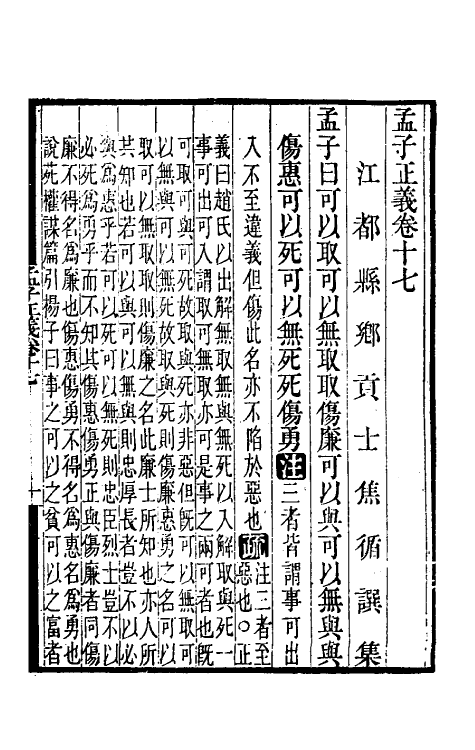 孟子正義卷十七
江都縣鄉貢士焦循譔集
孟子曰可以取可以無取取傷廉可以與可以無與與
傷惠可以死可以無死死傷勇注三者皆謂事可出
入不至違義但傷此名亦不陷於惡也疏注三者至
惡也○正
義曰趙氏以出解無取無與無死以入解取與死一
事可出可入謂取可無取與可無死亦可是事之兩可者也旣
可取可與可死故取與死亦非惡但旣可以無取可
以無與可以無死故取與死則傷廉惠勇之名可以
取可以無取取則傷廉之名此廉士所知也亦人所
共知也若可以與可以無與則忠厚長者豈不以必
與爲惠乎若可以死可以無死則忠臣烈士豈不以
必死爲勇乎而不知其傷惠傷勇正與傷廉者同傷
廉不得名爲廉也傷惠傷勇不得名爲惠名爲勇也
說苑權謀篇引揚子曰事之可以之貧可以之富者